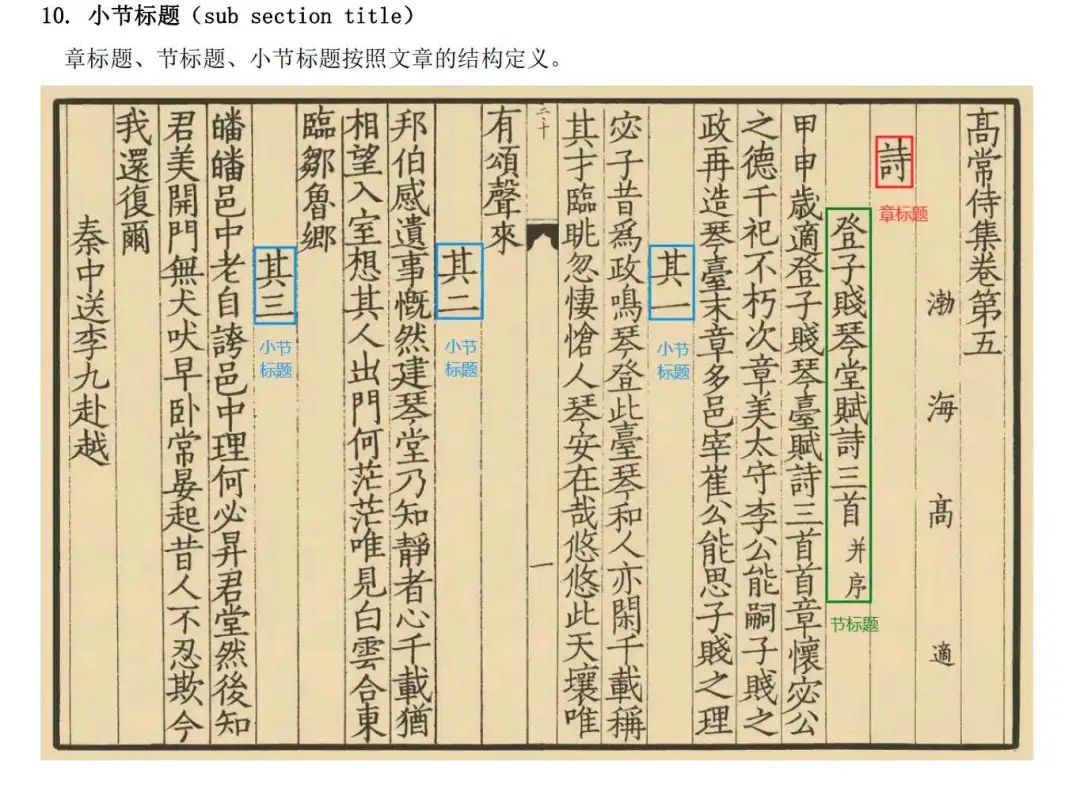 10. 小节标题（sub section title）
章标题、节标题、小节标题按照文章的结构定义。
髙常侍集卷第五
渤海髙適
詩
章标题
登子賤琴堂賦詩三首并序
节标题
甲申歳適登子賤琴臺賦詩三首首章懷宓公
之德千祀不朽次章美太守李公能嗣子賤之
政再造琴臺末章多邑宰崔公能思子賤之理
其一
小节
标题
宓子昔為政鳴琴登此臺琴和人亦閑千載稱
其才臨眺忽悽愴人琴安在哉悠悠此天壤唯
二十
一
有頌聲來
其二
小节
标题
邦伯感遺事慨然建琴堂乃知靜者心千載猶
相望入室想其人出門何茫茫唯見白雲合東
臨鄒魯郷
其三
小节
标题
皤皤邑中老自誇邑中理何必昇君堂然後知
君美開門無犬吠早卧常晏起昔人不忍欺今
我還復爾
秦中送李九赴越